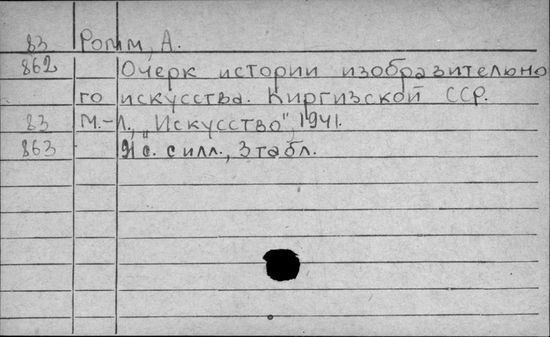 83 Ромм, А.
862 Очерк истории изобразительно
го искусства. Киргизской ССР.
83 М.-Л., „Искусство", 1941.
863 91 с. с илл., 3 табл.